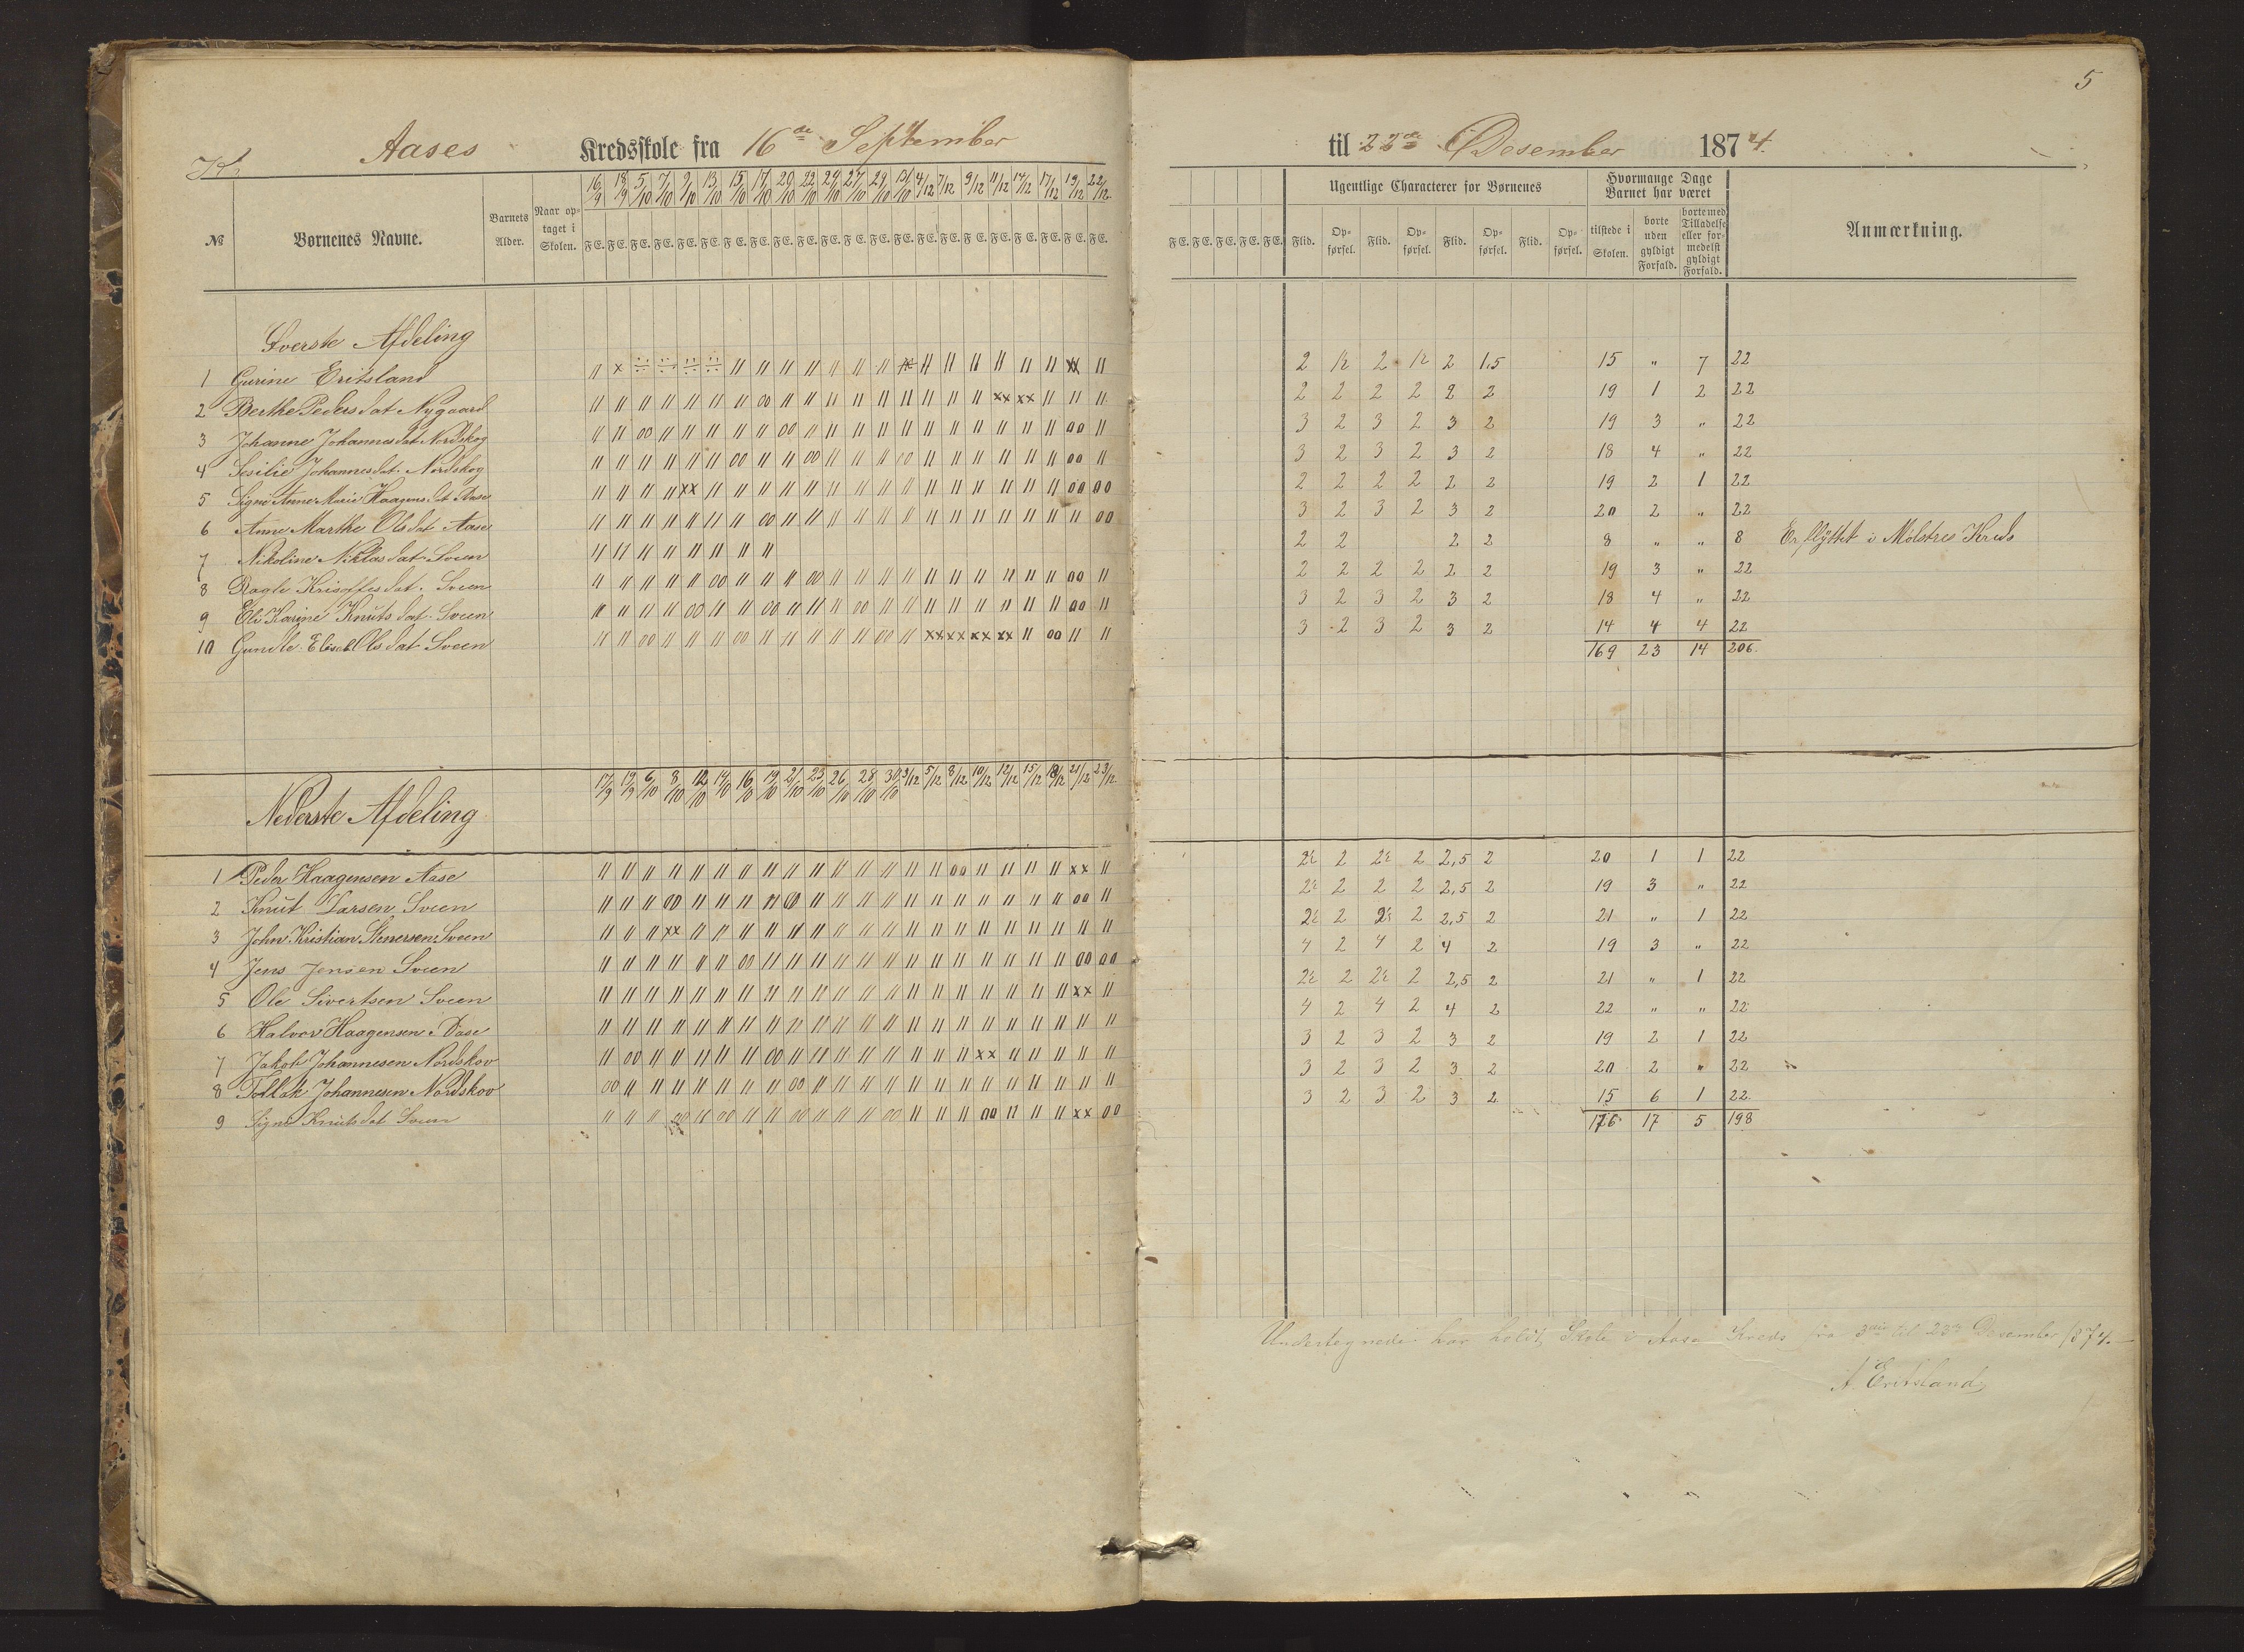 5
Aases Kredsskole fra 16de September til 22de Desember 1874.
№ Børnenes Navne. Barnets Alder. Naar optaget i Skolen. 16/9 18/9 5/10 7/10 9/10 13/10 15/10 17/10 20/10 22/10 24/10 27/10 29/10 31/10 4/12 7/12 9/12 11/12 14/12 17/12 19/12 22/12
F E. F E. F E. F E. F E. F E. F E. F E. F E. F E. F E. F E. F E. F E. F E. F E. F E. F E. F E. F E. F E. F E.
F E. F E. F E. F E. F E. Ugentlige Characterer for Børnenes Flid. Opførsel. Flid. Opførsel. Flid. Opførsel. Flid. Opførsel.
Hvormange Dage Barnet har været tilstede i Skolen. borte uden gyldigt Forfald. borte med Tilladelse eller formedelst gyldigt Forfald. Anmærkning.
Øverste Afdeling
1 Gurine Eritsland 2 2 2 1,5 15 " 7 22
2 Berthe Pedersdat Nygaard 2 2 2 2 2 2 19 1 2 22
3 Johanne Johannesdat Nordskog 3 2 3 2 3 2 19 3 " 22
4 Sesilie Johannesdat. Nordskog 3 2 3 2 3 2 18 4 " 22
5 Signe Anne Marie Haagensdat Aase 2 2 2 2 2 2 19 2 1 22
6 Anne Marthe Olsdat Aase 3 2 3 2 3 2 20 2 " 22
7 Nikoline Niklasdat Sveen 2 2 2 2 8 " " 8 Er flyttet i Mølstres Kreds
8 Ragle Krisoffesdat. Sveen 2 2 2 2 2 2 19 3 " 22
9 Eli Karine Knutsdat. Sveen 3 2 3 2 3 2 18 4 " 22
10 Gunile Elisab Olsdat Sveen 3 2 3 2 3 2 14 4 4 22
169 23 14 206.
Nederste Afdeling 17/9 19/9 6/10 8/10 12/10 14/10 16/10 19/10 21/10 23/10 26/10 28/10 30/10 3/12 5/12 8/12 10/12 12/12 15/12 18/12 21/12 23/12
1 Peder Haagensen Aase 2 2 2,5 2 20 1 1 22
2 Knut Larsen Sveen 2 2 2 2,5 2 19 3 " 22
3 John Kristian Stenersen Sveen 2 2 2,5 2 21 " 1 22
4 Jens Jensen Sveen 4 2 4 2 4 2 19 3 " 22
5 Ole Sivertsen Sveen 2 2 2,5 2 21 " 1 22
6 Halvor Haagensen Aase 4 2 4 2 4 2 22 " " 22
7 Jakob Johannesen Nordskov 3 2 3 2 3 2 19 2 1 22
8 Tollak Johannesen Nordskov 3 2 3 2 3 2 20 2 " 22
9 Signe Knutsdat Sveen 3 2 3 2 3 2 15 6 1 22.
176 17 5 198
Undertegnede har holdt Skole i Aase Kreds fra 3die til 23de Desember 1874.
A. Eritsland